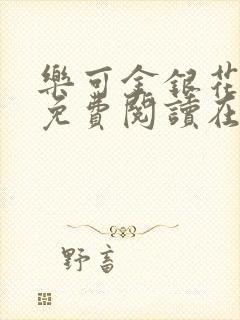 樂可金銀花
免費閱讀在
野畜